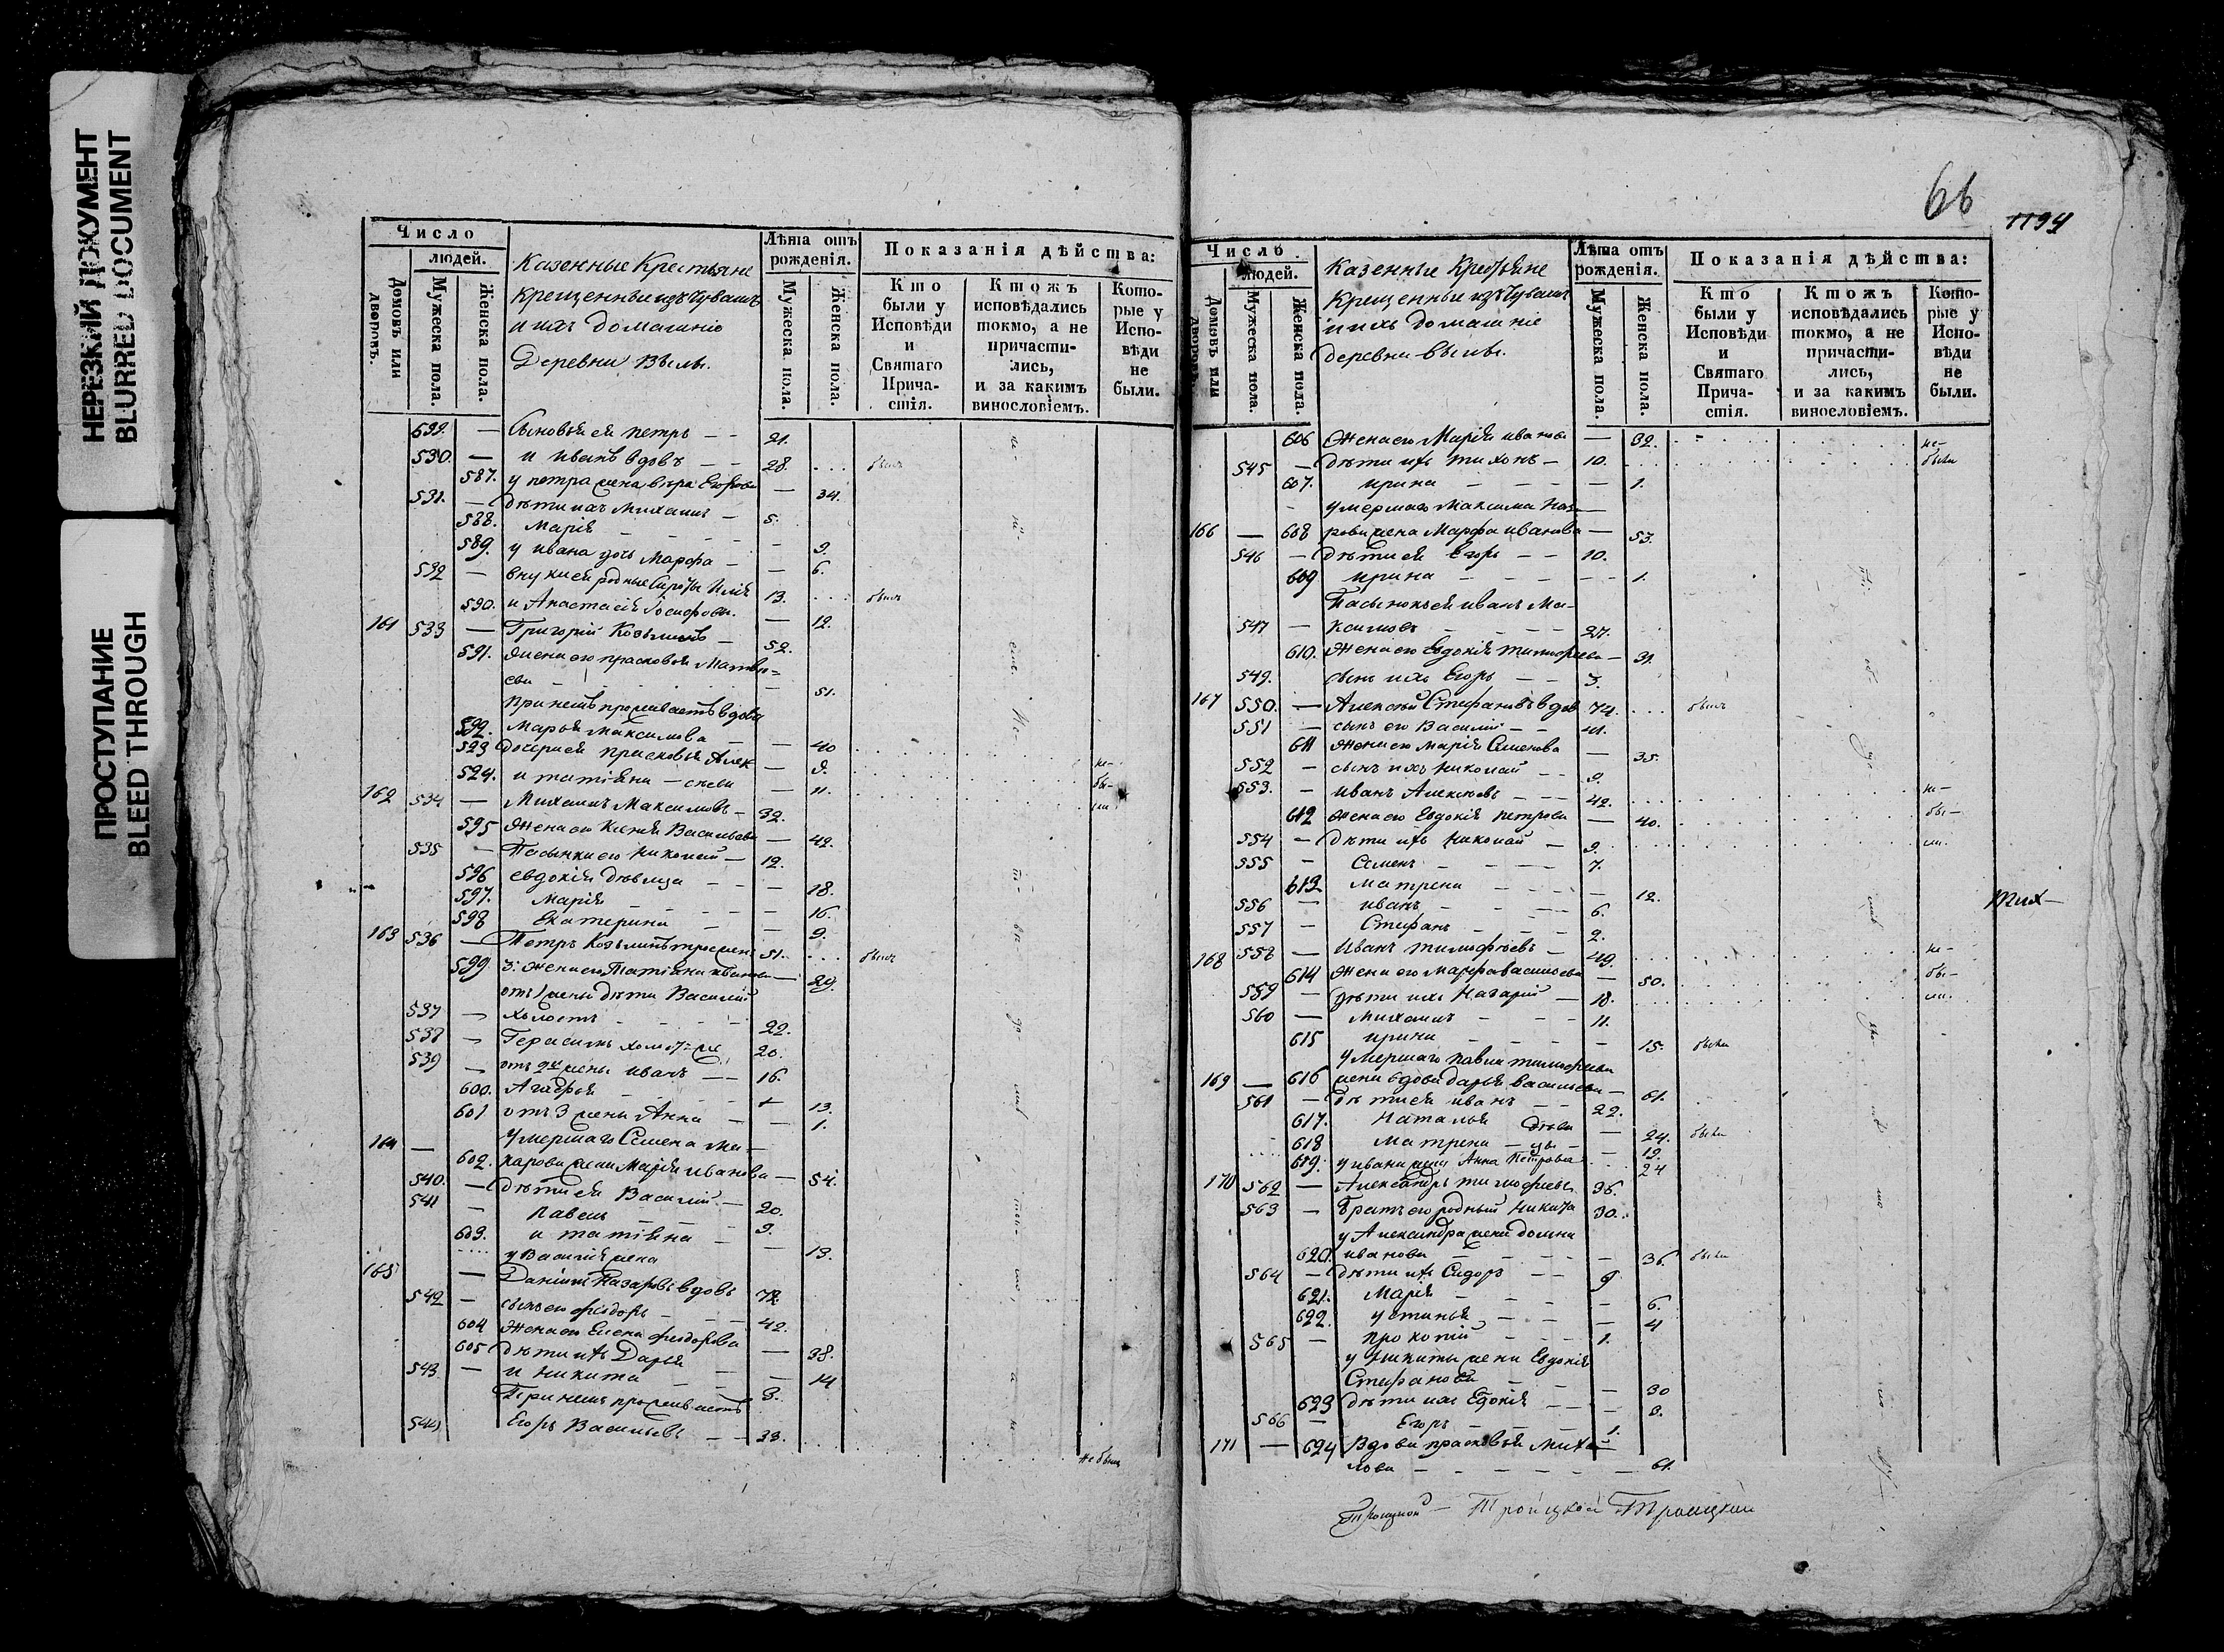 НЕРЕЗКИЙ ДОКУМЕНТ
BLURRED DOCUMENT
ПРОСТУПАНИЕ
BLEED THROUGH
Число
людей.
Домовъ или дворовъ.
Мужеска пола.
Женска пола.
Казенные Крестьяне
Крещенные изъ Чувашъ
и ихъ домашніе
Деревни Вылы.
Лѣта отъ рожденія.
Мужеска пола.
Женска пола.
Показанія дѣйства:
Кто были у Исповѣди и Святаго Причастія.
Ктожъ исповѣдались токмо, а не причастились, и за какимъ винословіемъ.
Которые у Исповѣди не были.
Сыновья ея петръ — 21.
530. — и иванъ вдовъ — 28. былъ
587. у петра жена вѣра Егорова — 34.
531. — дѣти ихъ Михаилъ — 5.
588. Марія — 9.
589. у ивана дочь Марфа — 6.
532 — внуки ея родные сироты Илія 13. былъ
590. и Анастасія Іосифовы. — 12.
161 533 — Григорій Козьминъ — 52.
591. Жена его прасковья Матвѣ=
ева — 51.
при немъ проживаетъ вдова
592. Марья Максимова — 40
593 дочери ея прасковья Алек — 9. не-
594. и татіяна — сѣевы — 11. бы-
162 534 — Михаилъ Максимовъ — 32. ли
595 Жена его Ксенія Васильева — 42.
535 — Пасынки его Николай — 12.
596 евдокія дѣвица — 18.
597. Марія — 16.
598 Екатерина — 9.
163 536 — Петръ Козьминъ 51. былъ
599 3. жена его Татіяна иванова — 29.
отъ 1 жены дѣти Василій
537 — холостъ — 22.
538 — Герасимъ 20.
539 — отъ 2й жены иванъ — 16.
600. Агафья — 13.
601 отъ 3 жены Анна — 1.
164 — Умершаго Семена Ма-
602. карова жена Марія иванова — 54.
540. — дѣти ея Василій — 20.
541 — павелъ — 9.
603. и татіяна — 13.
у Василія жена
165 — Даніилъ Назаровъ вдовъ 72
542 — сынъ его Ѳеодоръ — 42.
604 Жена его Елена Ѳеодорова — 38.
605 дѣти ихъ Дарья — 14
543 — и Никита — 8.
При немъ проживаетъ
544 Егоръ Васильевъ — 33. не были
66
1194
Число
людей.
Домовъ или дворовъ.
Мужеска пола.
Женска пола.
Казенные Крестьяне
Крещенные изъ Чувашъ
и ихъ домашніе
деревни Вылы.
Лѣта отъ рожденія.
Мужеска пола.
Женска пола.
Показанія дѣйства:
Кто были у Исповѣди и Святаго Причастія.
Ктожъ исповѣдались токмо, а не причастились, и за какимъ винословіемъ.
Которые у Исповѣди не были.
606 Жена его Марія иванова — 32. не-
545 — дѣти ихъ тихонъ — 10. были
607. ирина — 1.
умершаго Максима Наза-
166 — 608 рова жена Марфа иванова — 53.
546 — дѣти ея Егоръ — 10.
609 ирина — 1.
Пасынокъ ея иванъ Ма-
547 — ксимовъ — 27.
610. Жена его Евдокія тимофеева — 31.
549. сынъ ихъ Егоръ — 3.
167 550. — Алексѣй Стефановъ вдов 74. былъ
551 — сынъ его Василій — 41.
611 Жена его Марія Семенова — 35.
552 — сынъ ихъ Николай — 9.
553. — иванъ Алексѣевъ — 42. не-
612 жена его Евдокія петрова — 40. бы-
554 — дѣти ихъ Николай — 9. ли.
555 — Семенъ — 7.
613 Матрена — 12.
556 — иванъ — 6.
557 — Стефанъ — 2.
168 558 — Иванъ тимофѣевъ — 49. не-
614 Жена его Марфа васильева — 50. бы-
559 — дѣти ихъ Назарій — 18. ли.
560 — Михаилъ — 11.
615 ирина — 15. была
Умершаго павла тимофеева
169 — 616 жена вдова дарья васильева — 61.
561 — дѣти ея иванъ — 22.
617. Наталья дѣви — 24. были
618 Матрена — цы — 19.
619. у ивана жена Анна Петрова 24
170 562 — Александръ тимофеевъ 36.
563 — Братъ его родный Никита 30.
у Александра жена домна
620. иванова — 36. были
564 — дѣти ихъ Сидоръ — 9
621. Марія — 6.
622. устинья — 4
565 — прокопій — 1.
у никиты жена Евдокія
Стефанова — 30
623 дѣти ихъ Едокія — 3.
566 — Егоръ — 1.
171 — 624 Вдова прасковья Миха-
лова — 61.
Тих-
Троицкой Троицкій